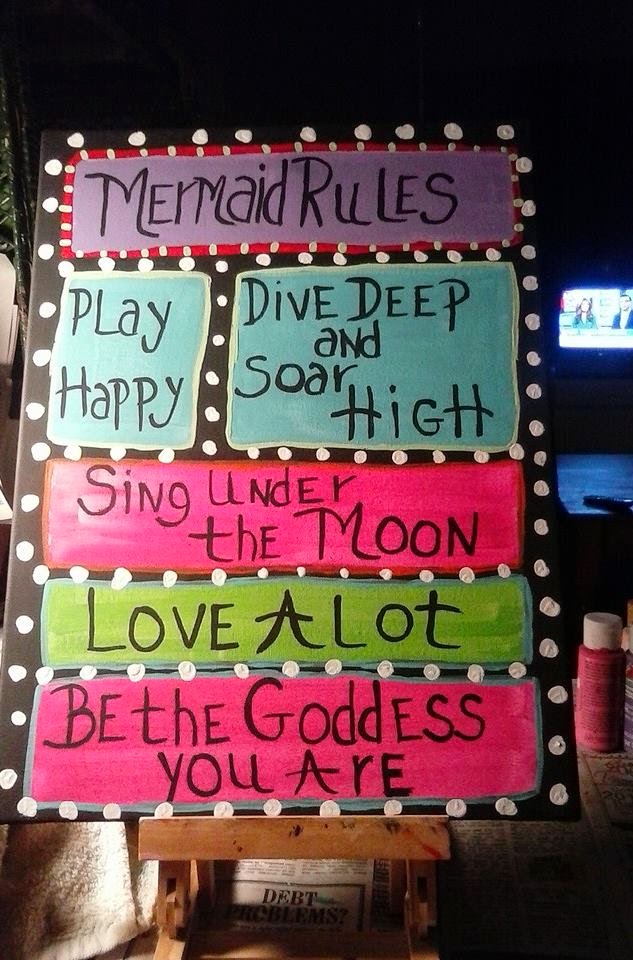 MermaidRuLES
PLay
Happy
DivE DEEP
and
Soar
HiGH
Sing UNdEr
the MOON
LOVE A Lot
BE the GoddESS
you ArE
DEBT
PROBLEMS?